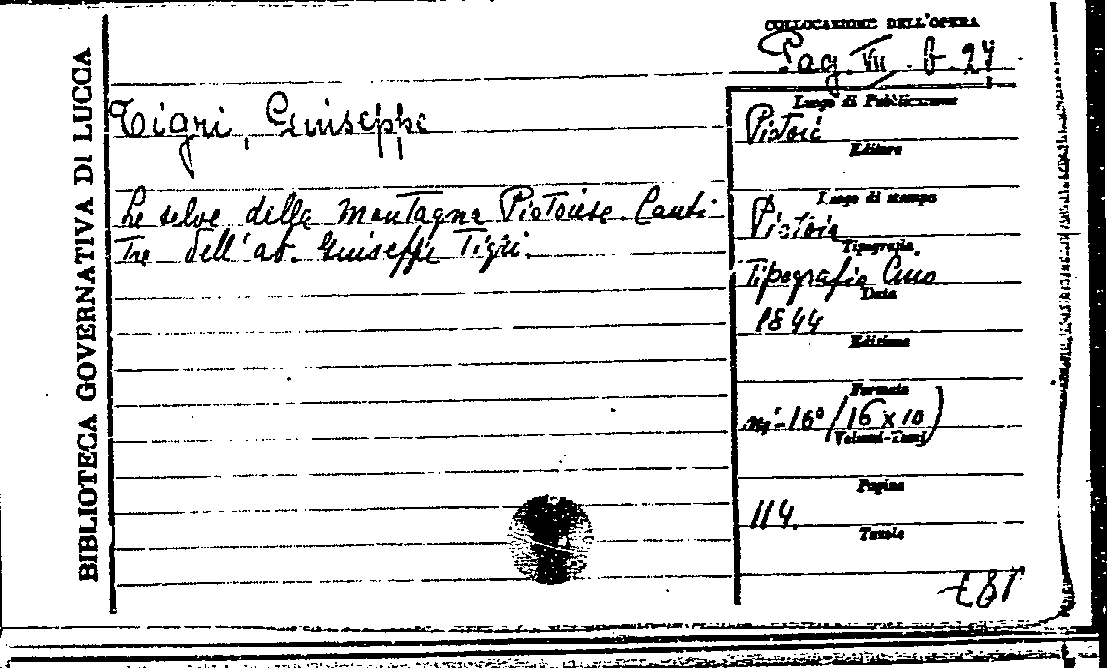 BIBLIOTECA GOVERNATIVA DI LUCCA
COLLOCAZIONE DELL'OPERA
Pag. VII. b. 27
Tigri, Giuseppe
Le selve della Montagna Pistoiese. Canti
Tre dell'ab. Giuseppe Tigri.
Luogo di Pubblicazione
Pistoia
Editore
Luogo di stampa
Pistoia
Tipografia
Tipografia Cino
Data
1844
Edizione
Formato
in-16° (16 x 10)
Volumi-Tomi
Pagine
114.
Tavole